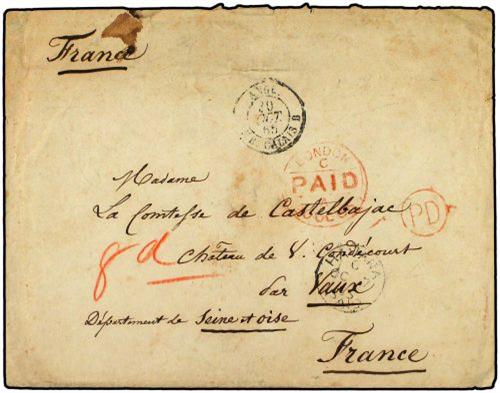 France
ANGL.
20
OCT
65
CALAIS B
LONDON
C
PAID
Madame
La Comtesse de Castelbajac
PD
8d
Château de V. Condécourt
C
par Vaux
Département de Seine et oise
France